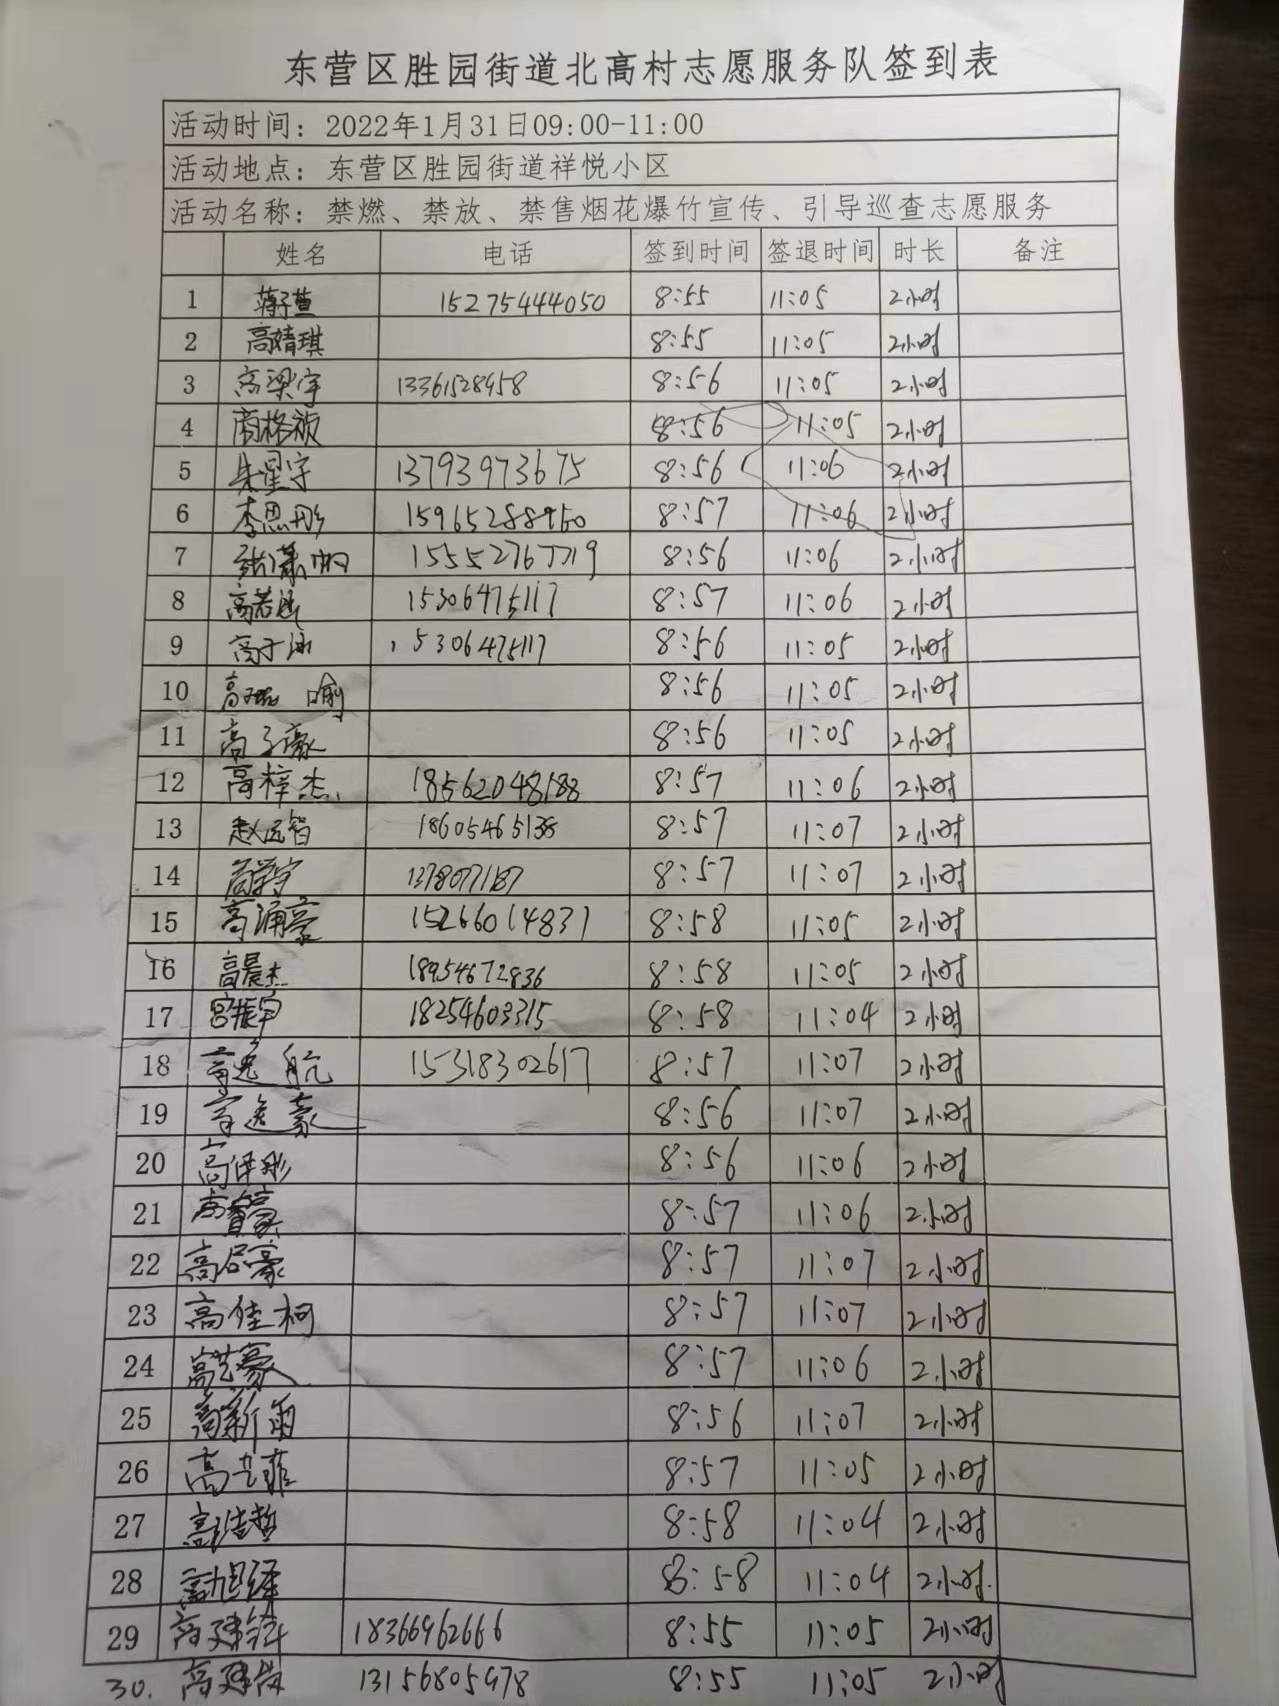 东营区胜园街道北高村志愿服务队签到表
活动时间：2022年1月31日09:00-11:00
活动地点：东营区胜园街道祥悦小区
活动名称：禁燃、禁放、禁售烟花爆竹宣传、引导巡查志愿服务
姓名 电话 签到时间 签退时间 时长 备注
1 15275444050 8:55 11:05 2小时
2 高婧琪 8:55 11:05 2小时
3 高梁宇 13361528958 8:56 11:05 2小时
4 8:56 11:05 2小时
5 朱星宇 13793973675 8:56 11:06 2小时
6 李思彤 8:57 11:06 2小时
7 8:56 11:06 2小时
8 15306475117 8:57 11:06 2小时
9 15306475117 8:56 11:05 2小时
10 8:56 11:05 2小时
11 高子豪 8:56 11:05 2小时
12 高梓杰 8:57 11:06 2小时
13 赵远智 18605465138 8:57 11:07 2小时
14 8:57 11:07 2小时
15 高涌豪 15266014831 8:58 11:05 2小时
16 高晨杰 18954672836 8:58 11:05 2小时
17 宫振宇 18254603315 8:58 11:04 2小时
18 高逸航 15318302617 8:57 11:07 2小时
19 高逸豪 8:56 11:07 2小时
20 8:56 11:06 2小时
21 8:57 11:06 2小时
22 8:57 11:07 2小时
23 高佳柯 8:57 11:07 2小时
24 高艺豪 8:57 11:06 2小时
25 高新雨 8:56 11:07 2小时
26 高艺菲 8:57 11:05 2小时
27 高浩哲 8:58 11:04 2小时
28 8:58 11:04 2小时
29 18366962666 8:55 11:05 2小时
30. 13156805978 8:55 11:05 2小时